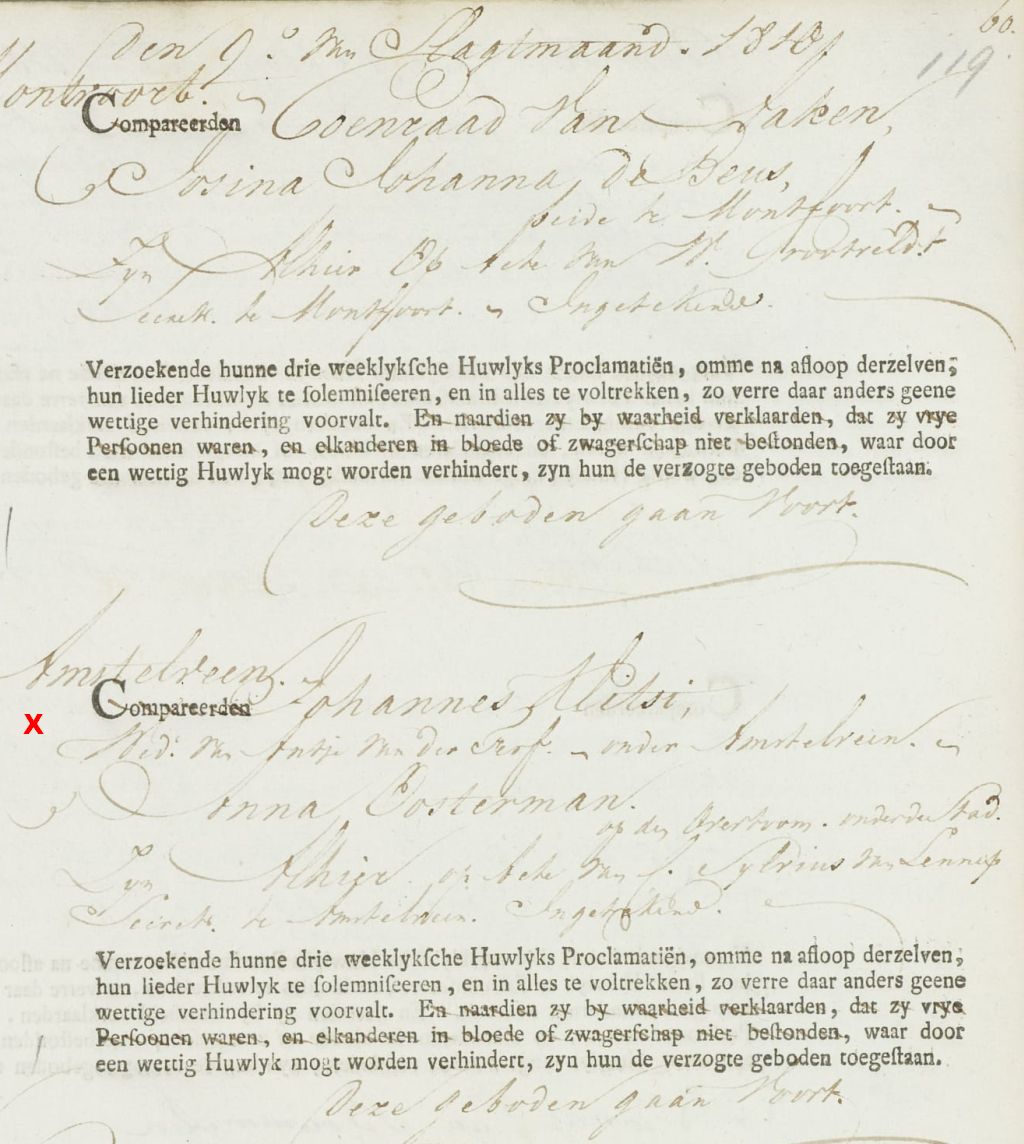 60.
119
den 9.º van Slagtmaand. 1810
Montvoort.
Compareerden Coenraad van Vaken,
& Josina Johanna, de Beus,
beide te Montfoort.
Zyn Alhier Op Acte van W. Grootveldt
Secrets. te Montfoort. Ingetekend.
Verzoekende hunne drie weeklykſche Huwlyks Proclamatiën, omme na afloop derzelven;
hun lieder Huwlyk te ſolemniſeeren, en in alles te voltrekken, zo verre daar anders geene
wettige verhindering voorvalt. En naardien zy by waarheid verklaarden, dat zy vrye
Perſoonen waren, en elkanderen in bloede of zwagerſchap niet beſtonden, waar door
een wettig Huwlyk mogt worden verhindert, zyn hun de verzogte geboden toegeſtaan.
Deze geboden gaan Voort.
Amstelveen.
Compareerden Johannes Klitsi,
X
Wed.r van Antje van der Terf. onder Amstelveen.
& Anna Oosterman.
op den Overtoom. onder de Stad.
Zyn Alhier op Acte van J. Sylvius van Lennep
Secrets. te Amstelveen. Ingetekend.
Verzoekende hunne drie weeklykſche Huwlyks Proclamatiën, omme na afloop derzelven;
hun lieder Huwlyk te ſolemniſeeren, en in alles te voltrekken, zo verre daar anders geene
wettige verhindering voorvalt. En naardien zy by waarheid verklaarden, dat zy vrye
Perſoonen waren, en elkanderen in bloede of zwagerſchap niet beſtonden, waar door
een wettig Huwlyk mogt worden verhindert, zyn hun de verzogte geboden toegeſtaan.
Deze geboden gaan Voort.